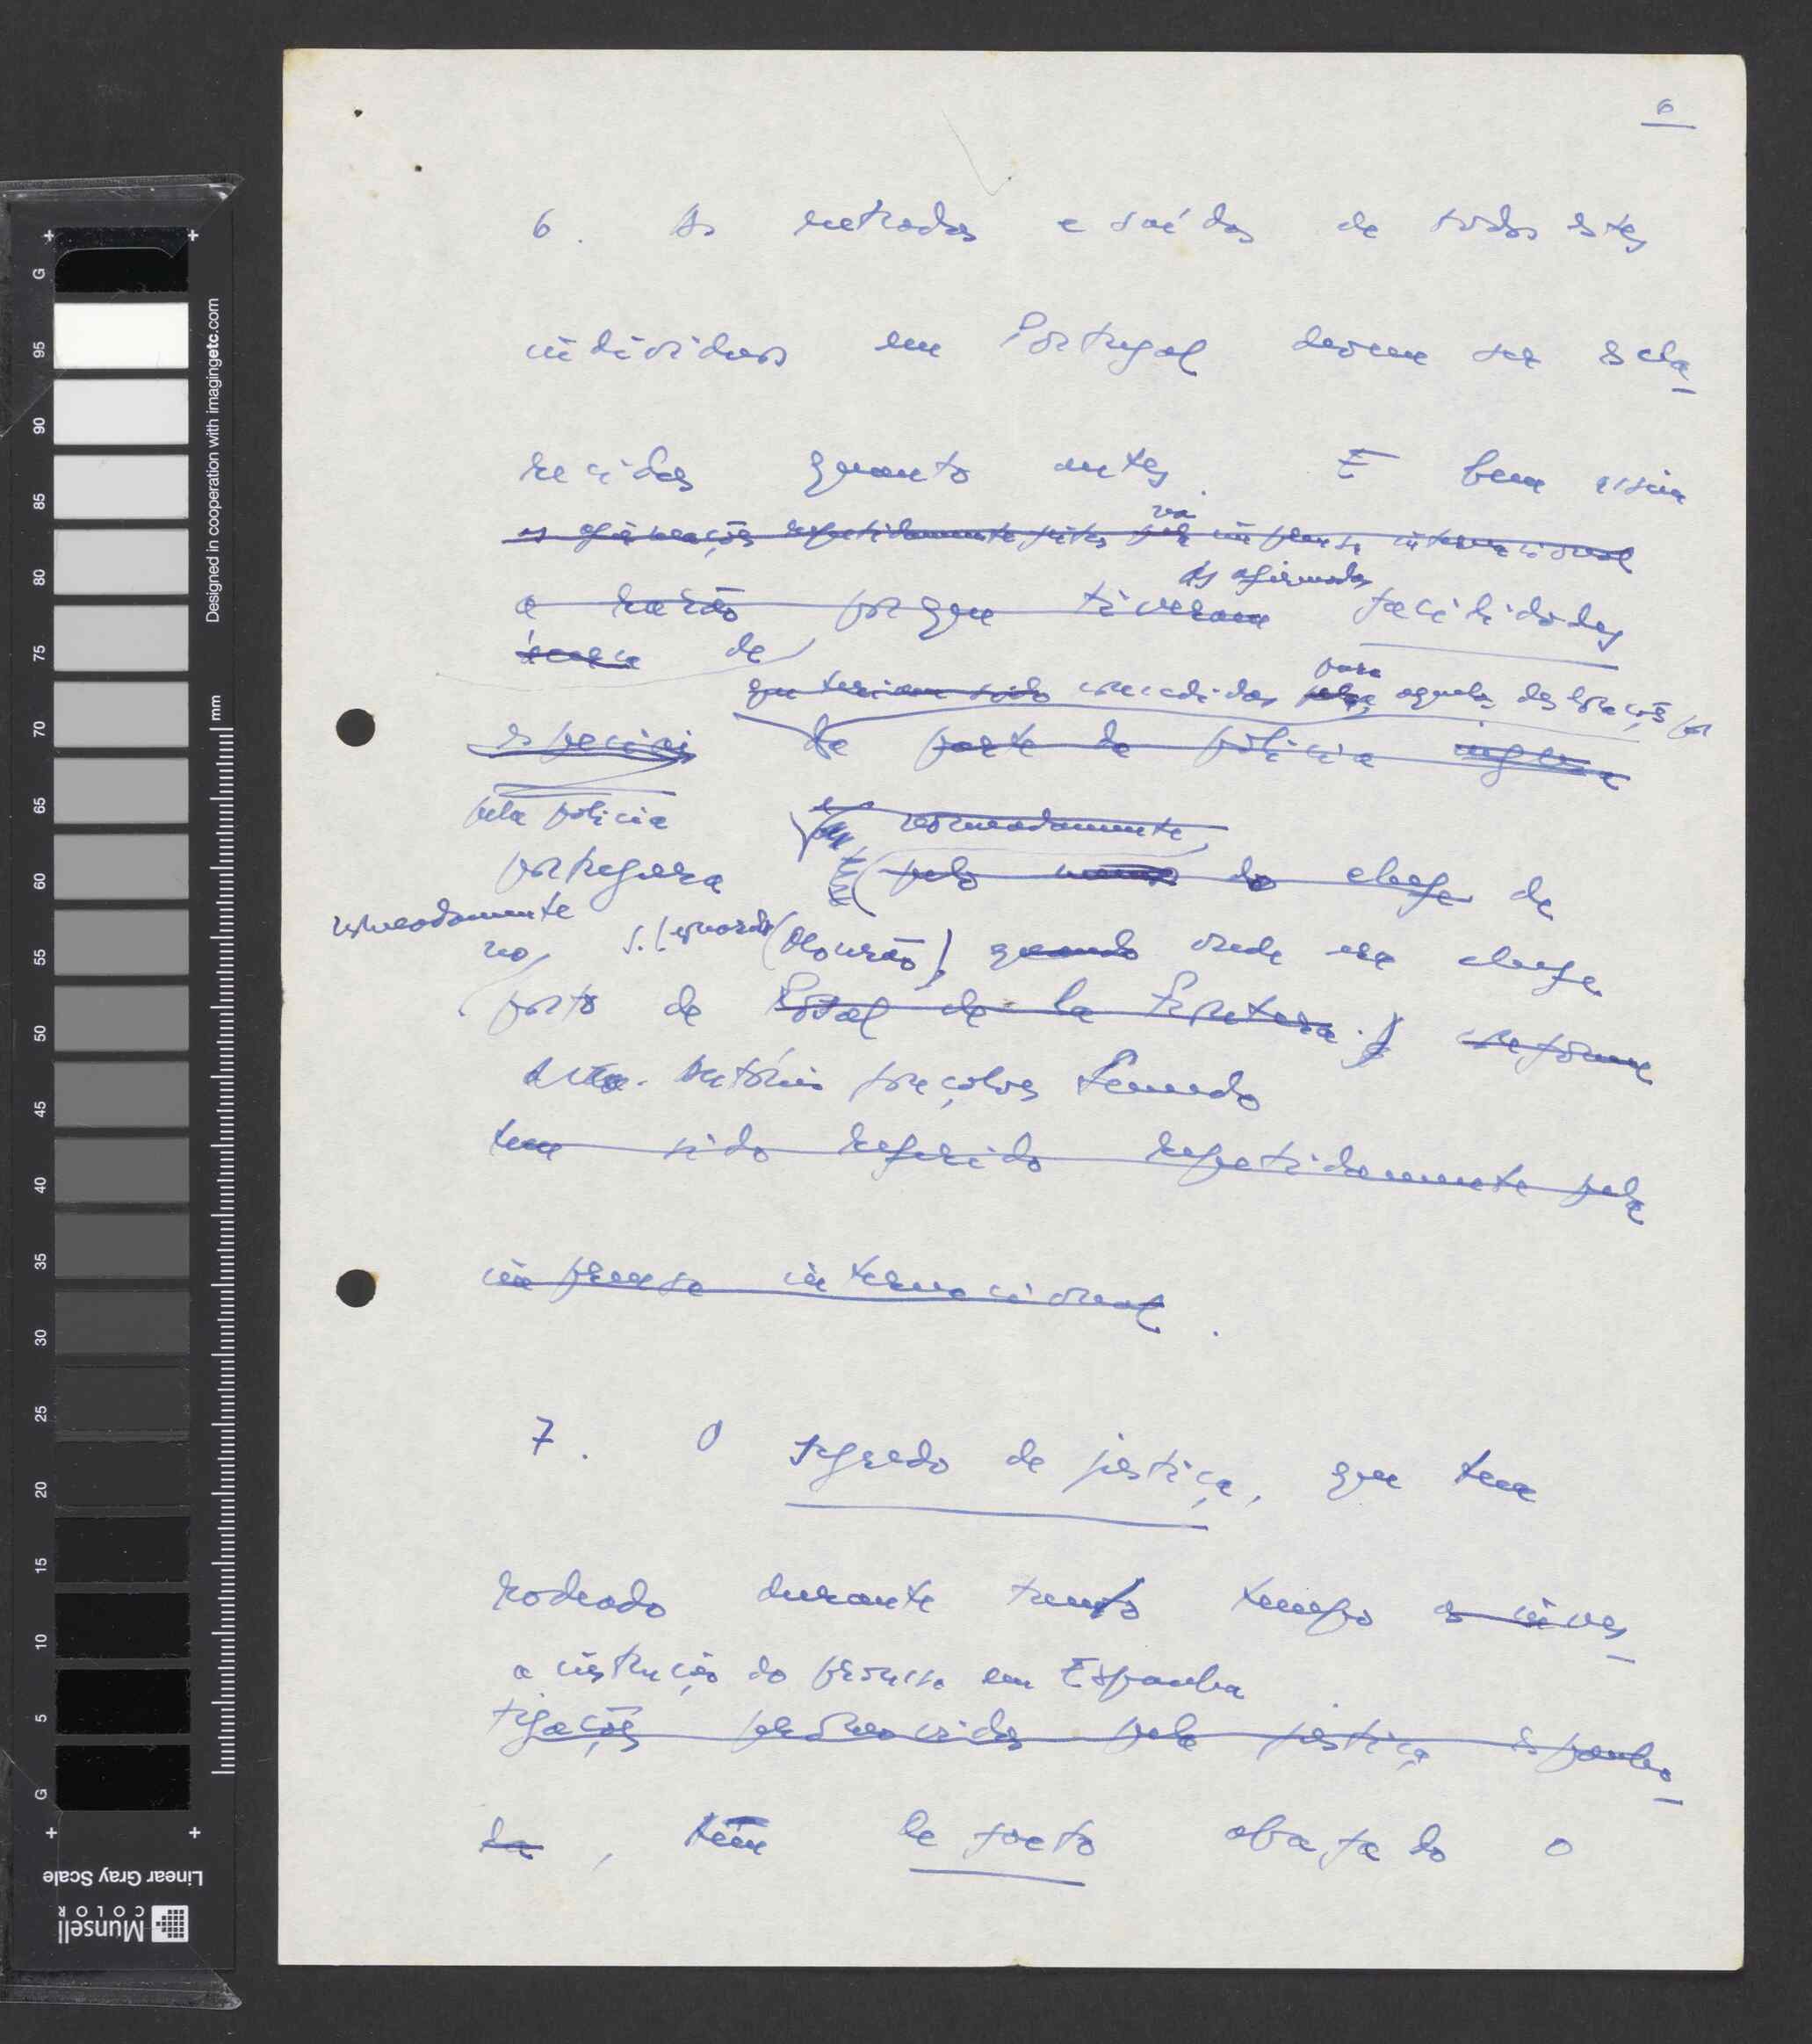 6
6. As entradas e saídas de todos estes
indivíduos em Portugal devem ser escla-
recidas quanto antes. E bem assim
as afirmações repetidamente feitas pela na imprensa internacional
as afirmadas
a razão porque tiveram facilidades
acerca de
para
que teriam sido concedidas pela aquelas deslocações por
especiais de parte da polícia
pela polícia nomeadamente,
portuguesa pelo do chefe de
nomeadamente
no S. Leonardo (Mourão), quando onde era chefe
posto de Rosal de la Frontera. conforme
António Gonçalves Semedo
tem sido referido repetidamente pela
imprensa internacional.
7. O segredo de justiça, que tem
rodeado durante tanto tempo as inves-
a instrução do processo em Espanha
tigações promovidas pela justiça espanho-
la, tem de facto abafado o
G 95 90 85 80 75 70 65 60 55 50 45 40 35 30 25 20 15 10 5 G
mm
Designed in cooperation with imagingetc.com
Linear Gray Scale
Munsell
COLOR